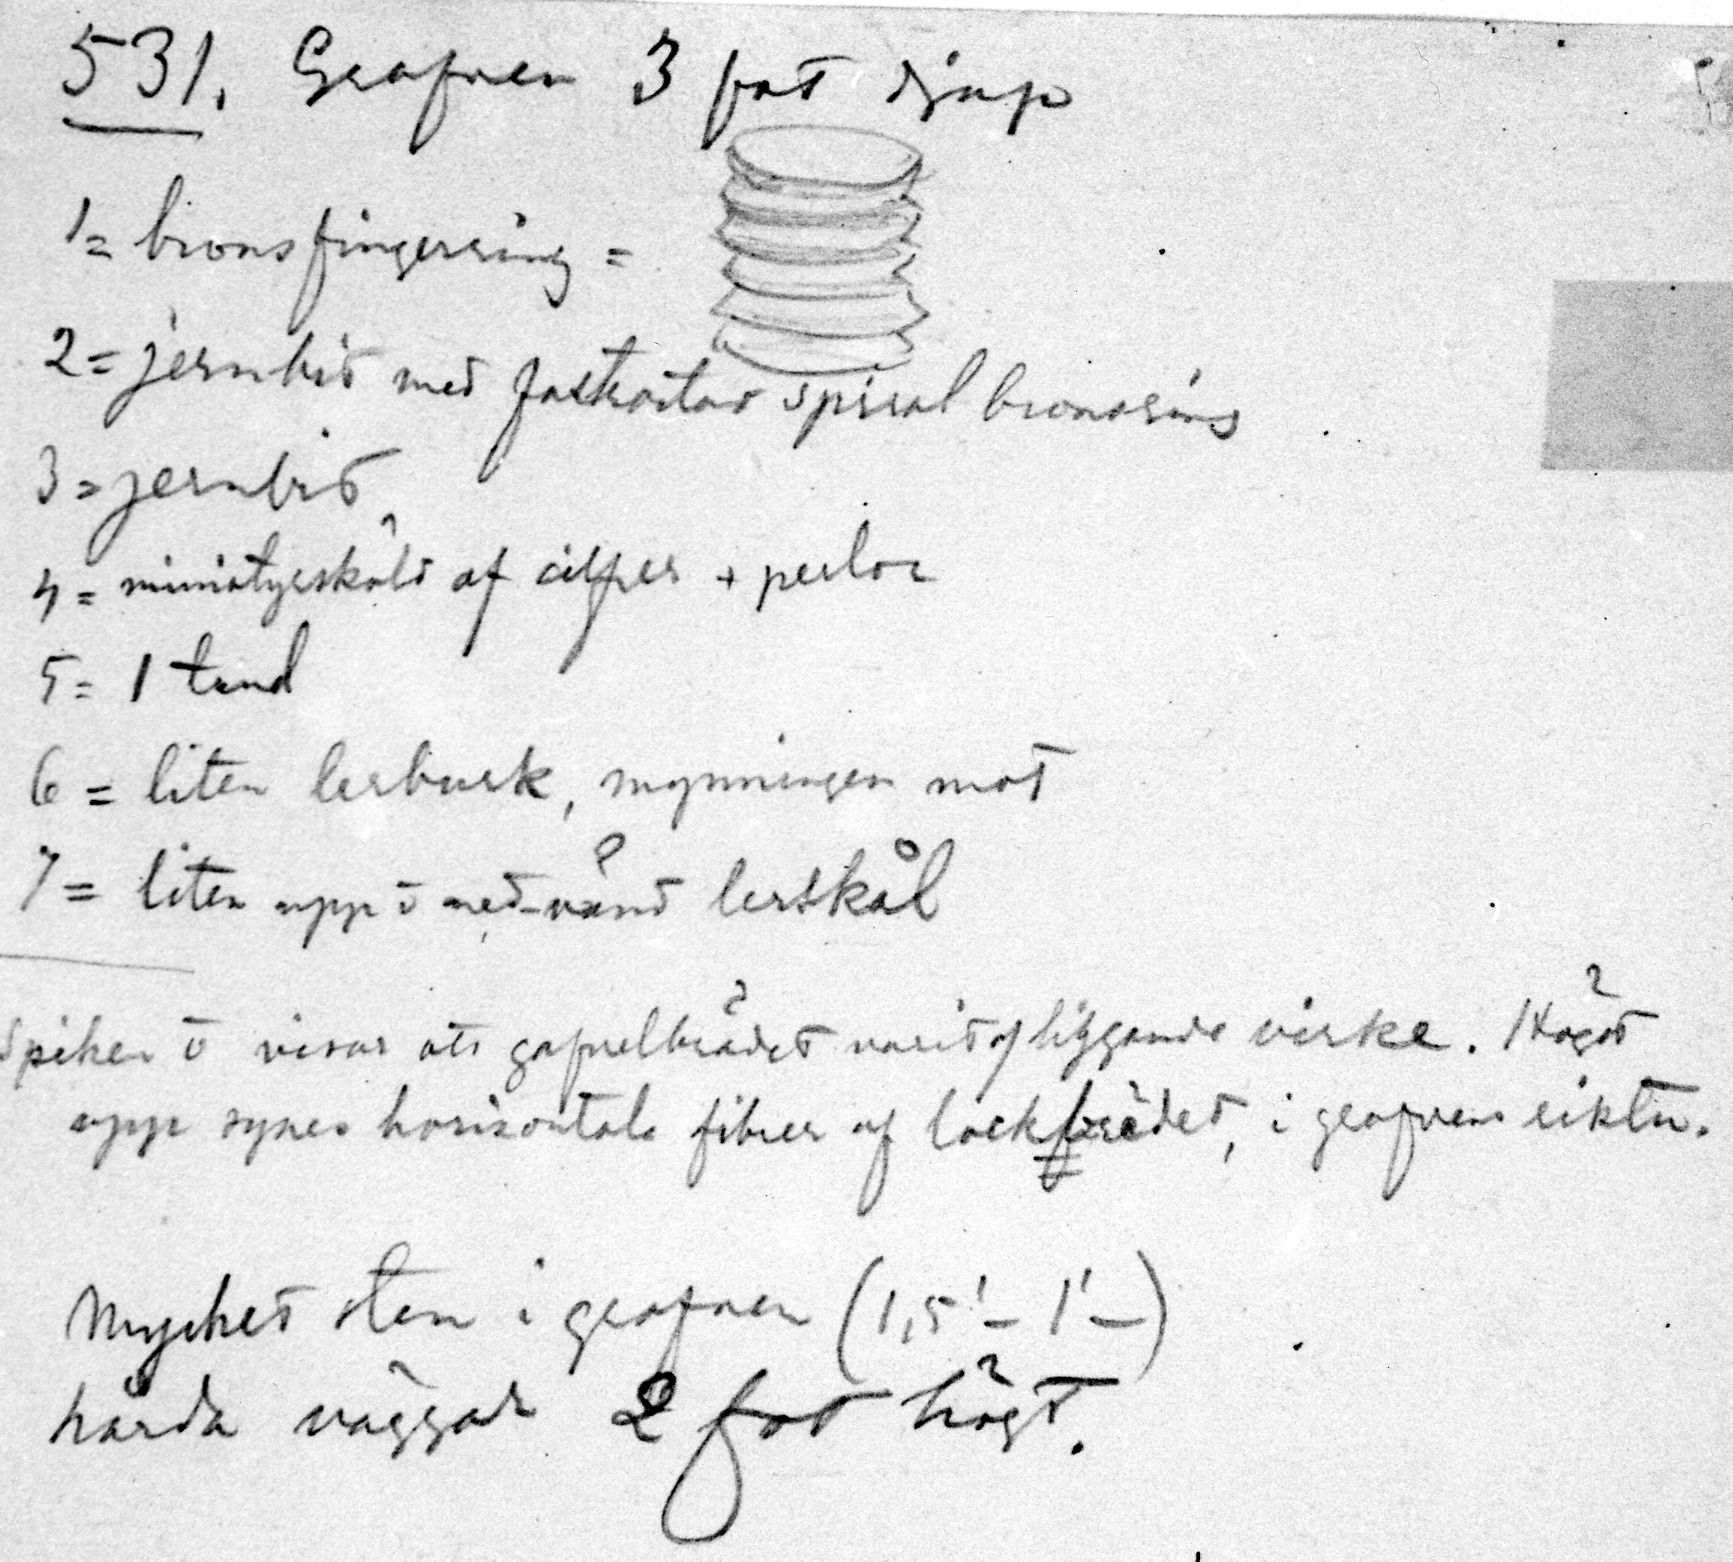 531. Grafven 3 fot djup
1 = bronsfingerring =
2 = jernbit med fastrostad spiral bronsring
3 = jernbit
4 = miniatyrsköld af silfver + perlor
5 = 1 tand
6 = liten lerburk, mynningen mot
7 = liten upp o ned-vänd lerskål
Spiken visar att gafvelbrädet varit af liggande virke. Högst
upp synes horisontala fibrer af lockbrädet, i grafvens riktn.
Mycket sten i grafven (1,5' – 1' –)
hårda väggar 2 fot högt.